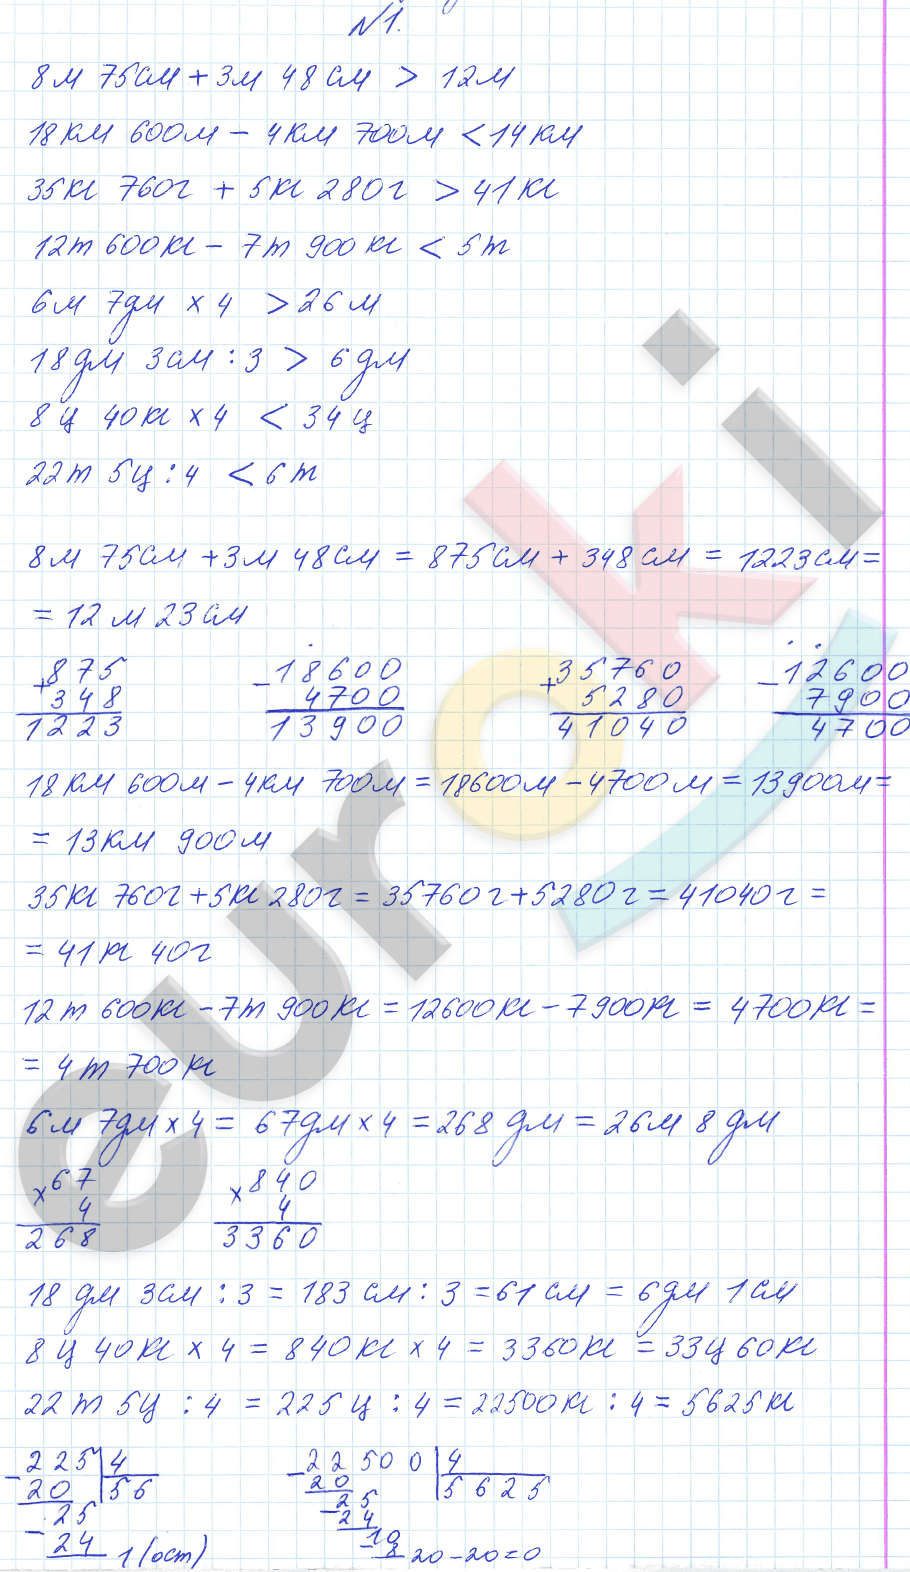 №1.
8м 75см + 3м 48см > 12м
18км 600м − 4км 700м < 14км
35кг 760г + 5кг 280г > 41кг
12т 600кг − 7т 900кг < 5т
6м 7дм × 4 > 26м
18дм 3см : 3 > 6дм
8ц 40кг × 4 < 34ц
22т 5ц : 4 < 6т
8м 75см + 3м 48см = 875см + 348см = 1223см =
= 12м 23см
+875
348
1223
−18600
4700
13900
+35760
5280
41040
−12600
7900
4700
18км 600м − 4км 700м = 18600м − 4700м = 13900м =
= 13км 900м
35кг 760г + 5кг 280г = 35760г + 5280г = 41040г =
= 41кг 40г
12т 600кг − 7т 900кг = 12600кг − 7900кг = 4700кг =
= 4т 700кг
6м 7дм × 4 = 67дм × 4 = 268дм = 26м 8дм
×67
4
268
×840
4
3360
18дм 3см : 3 = 183см : 3 = 61см = 6дм 1см
8ц 40кг × 4 = 840кг × 4 = 3360кг = 33ц 60кг
22т 5ц : 4 = 225ц : 4 = 22500кг : 4 = 5625кг
−225 4
20 56
−25
24
1 (ост)
−22500 4
20 5625
−25
24
−10
8
20−20=0
euroki